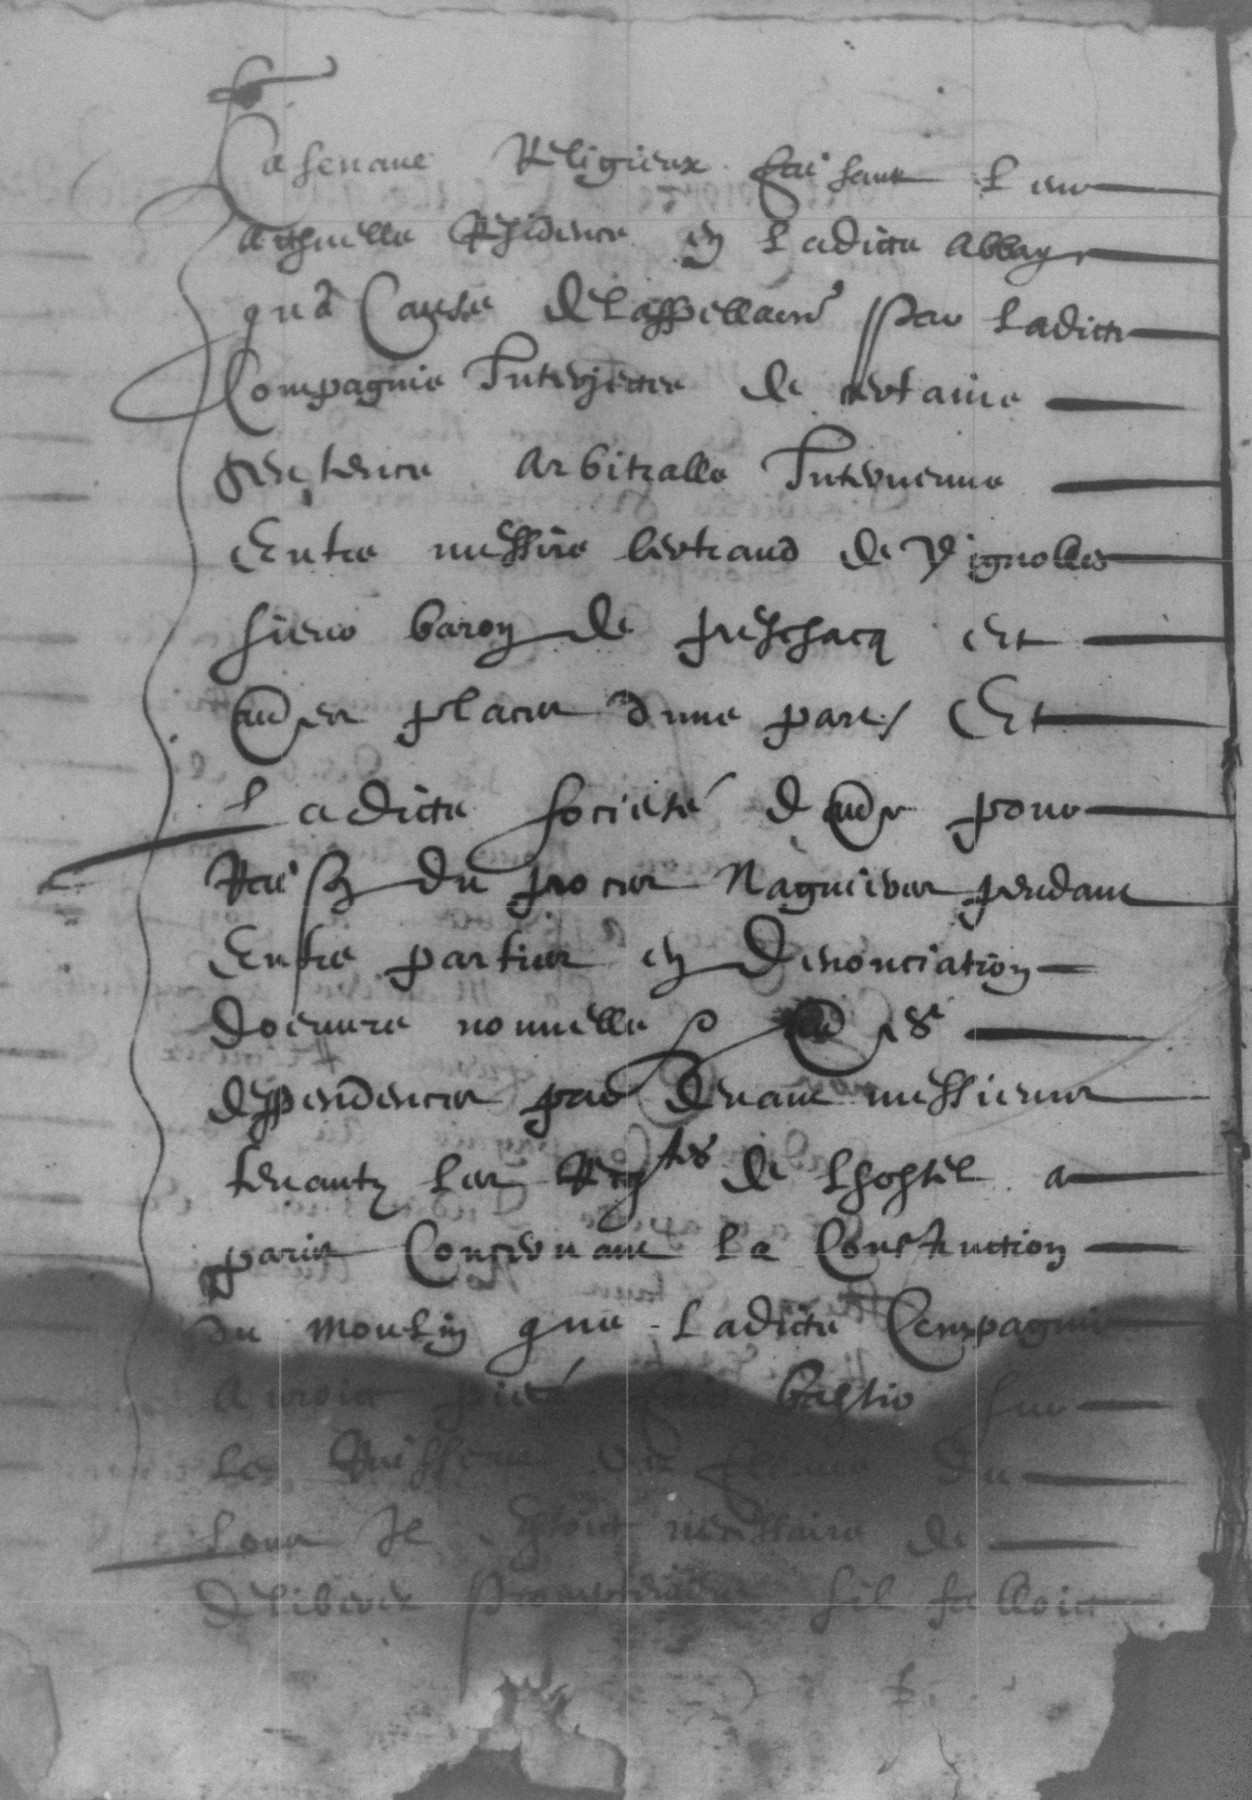 Casenave Religieux faisant leur
actuelle Residence en ladicte abbaye
qu'a Cause de lappellaon par ladicte
Compagnie Interjectee de certaine
sentence arbitralle Intervenue
Entre messire bertrand de Vignolles
sieur baron de preschacq et
aues places d'une part / Et
Ladicte societé d'au pour
Raison du proces Naguieres pendant
Entre parties en Denonciation
doeuvre nouvelle
deppendences par Devant messieurs
tenantz les Reqtes de lhostel a
paris Concernant la Construction
du moulin que Ladicte Compagnie
auroit bastir sur
le Ruisseau du
Il estoit necessaire de
deliberer sil falloit